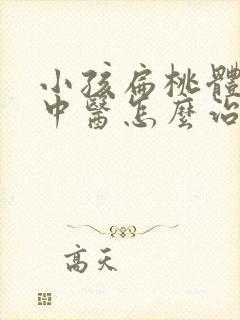 小孩扁桃體
中醫怎麼治
高天